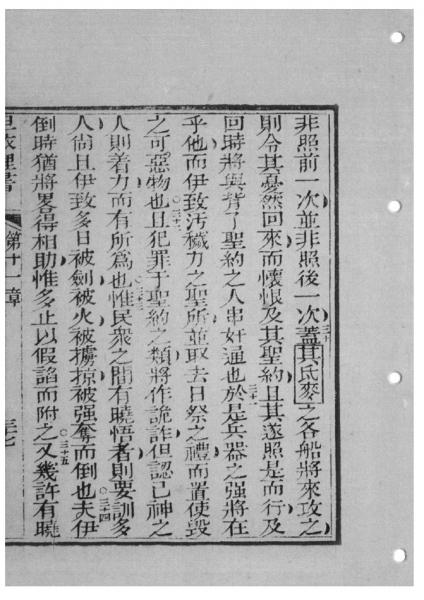 非照前一次並非照後一次三十蓋其氏麥之各船將來攻之
則令其憂然回來而懷恨及其聖約且其遂照是而行及
回時將與背了聖約之人串奸通也三十一於是兵器之强將在
乎他而伊致汚穢力之聖所並取去日祭之禮而置使毀
之可惡物也三十二且犯罪于聖約之類將作詭詐但認己神之
人則着力而有所爲也三十三惟民衆之間有曉悟者則要訓多
人尚且伊致多日被劍被火被擄掠被强奪而倒也三十四夫伊
倒時猶將畧得相助惟多止以假諂而附之三十五又幾許有曉
但依理書 第十一章 三七